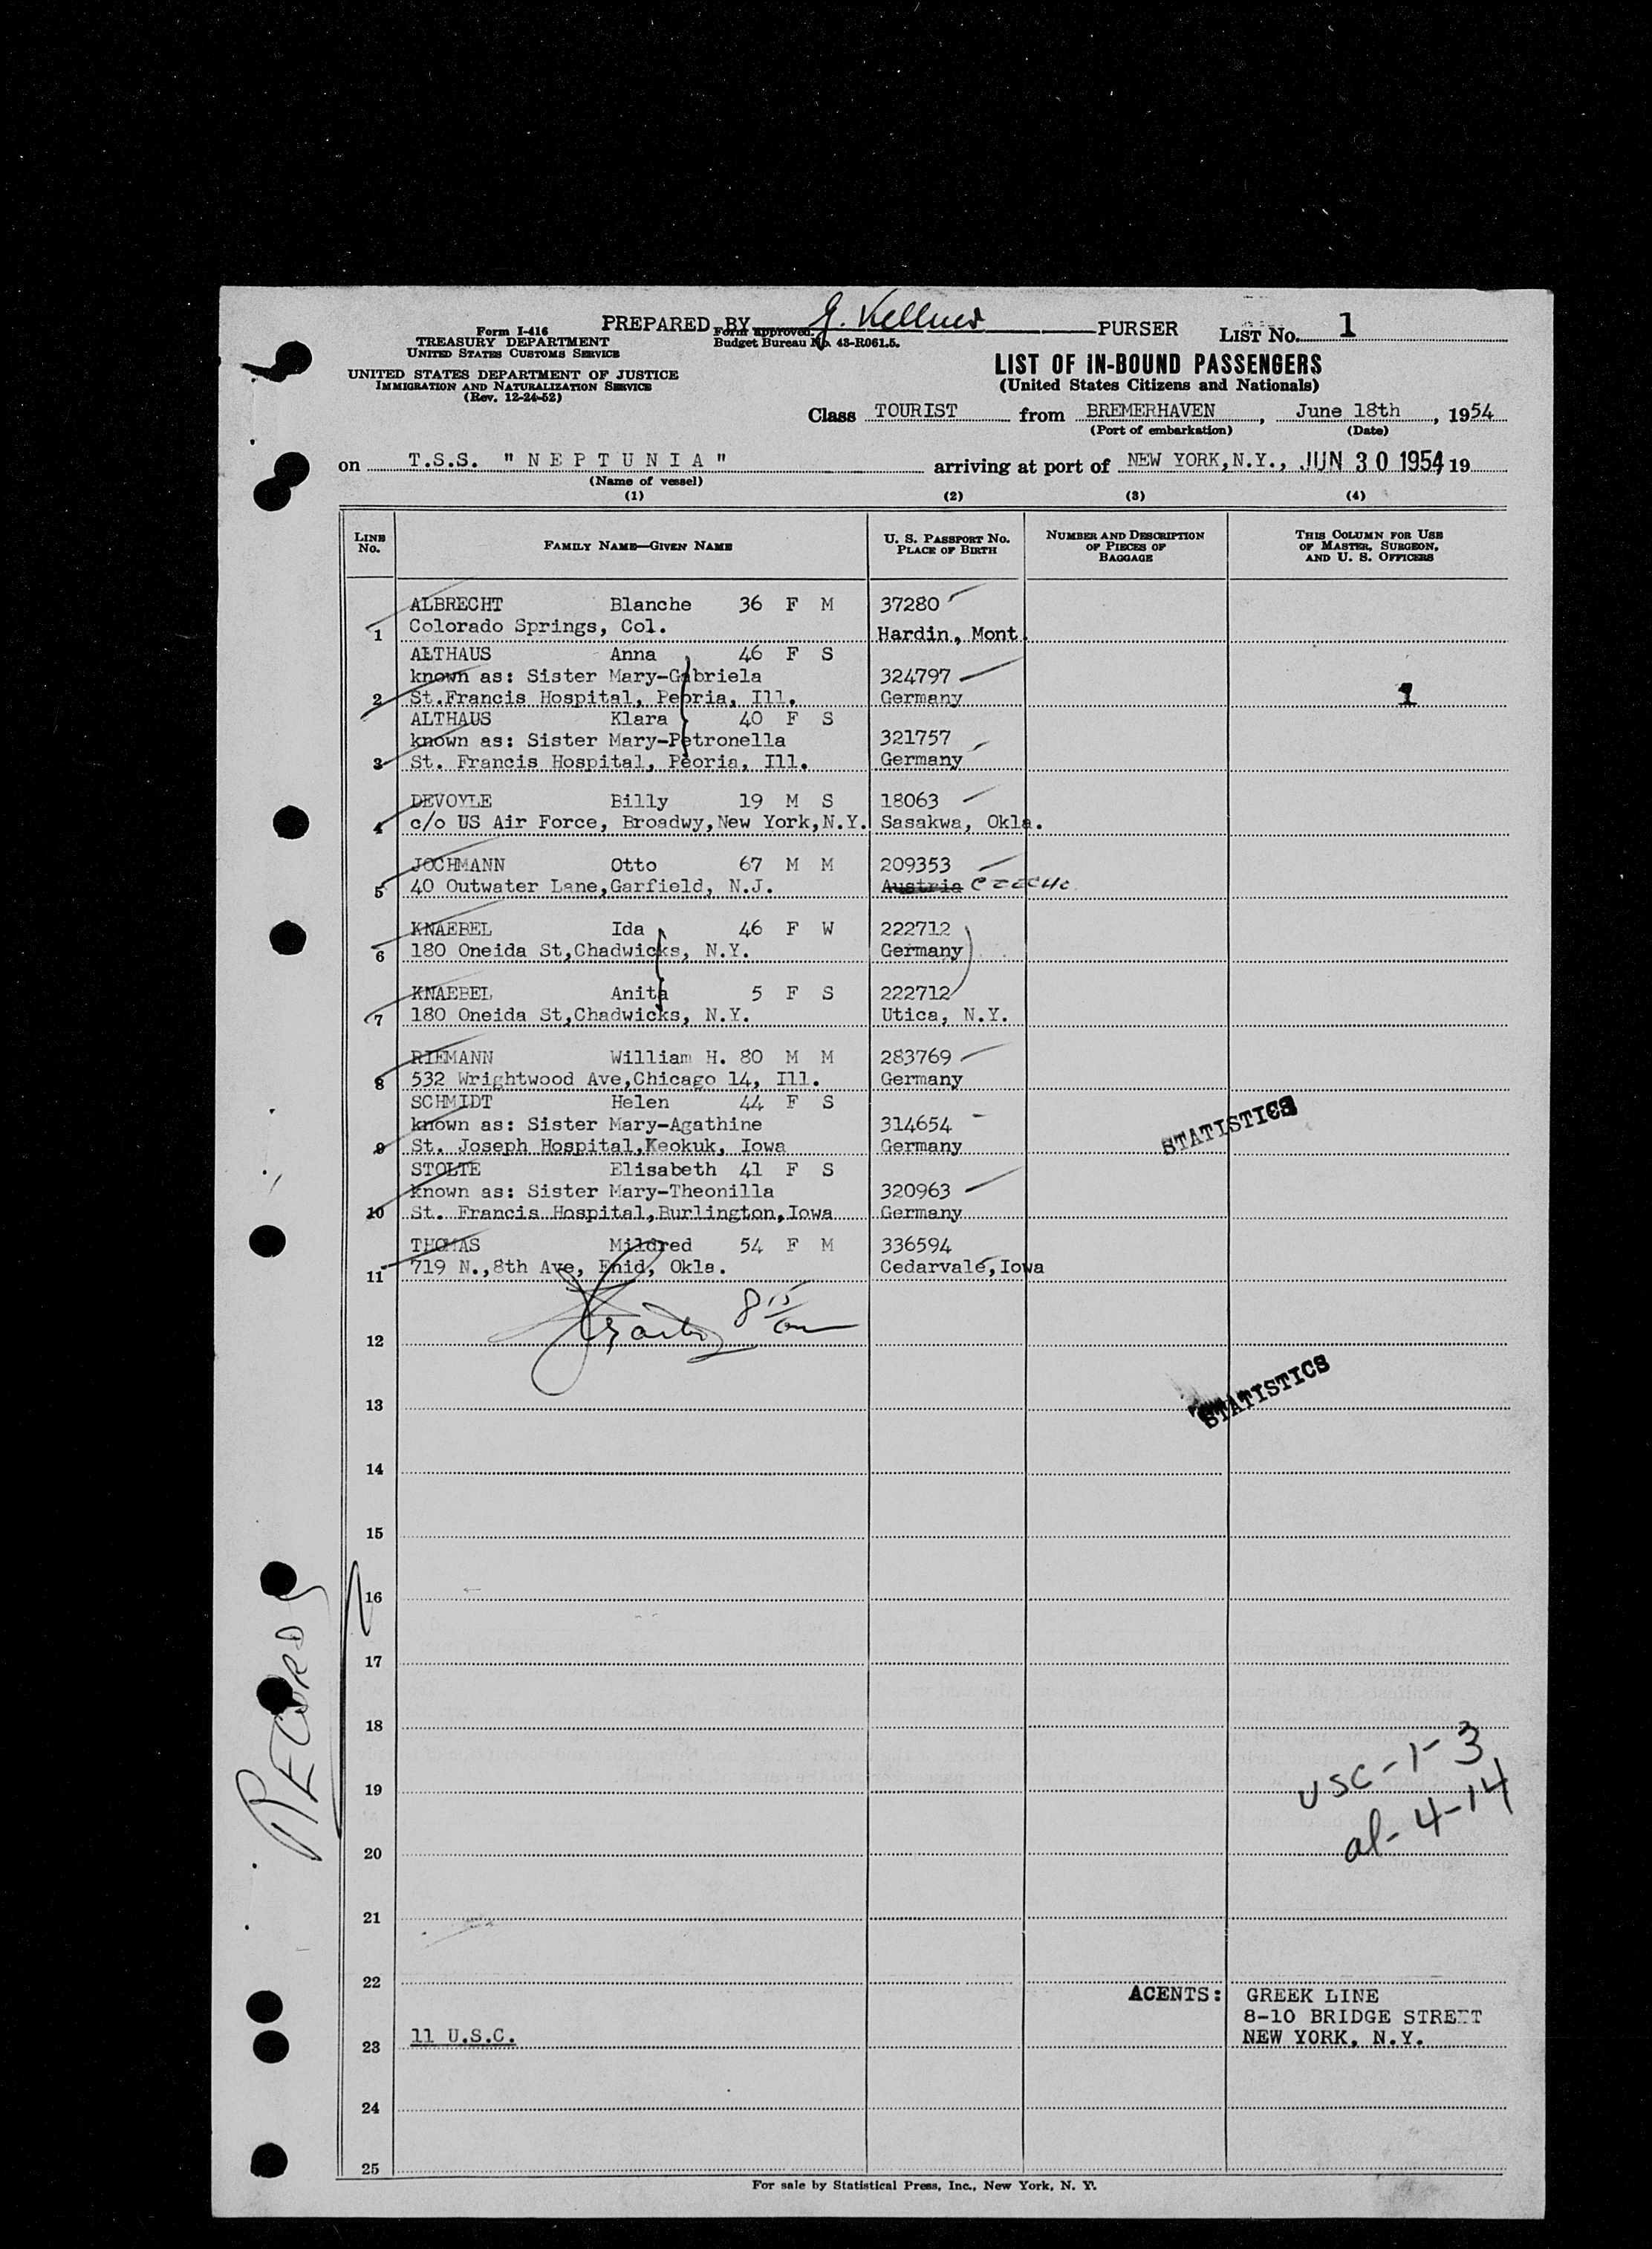 PREPARED BY G. Kellner PURSER
LIST No. 1
Form I-416
Form approved.
TREASURY DEPARTMENT
Budget Bureau No. 43-R061.5.
UNITED STATES CUSTOMS SERVICE
UNITED STATES DEPARTMENT OF JUSTICE
IMMIGRATION AND NATURALIZATION SERVICE
(Rev. 12-24-52)
LIST OF IN-BOUND PASSENGERS
(United States Citizens and Nationals)
Class TOURIST from BREMERHAVEN, June 18th, 1954
(Port of embarkation) (Date)
on T.S.S. " N E P T U N I A " arriving at port of NEW YORK, N.Y., JUN 30 1954 19
(Name of vessel)
(1) (2) (3) (4)
LINE No. FAMILY NAME—GIVEN NAME U. S. PASSPORT No. PLACE OF BIRTH NUMBER AND DESCRIPTION OF PIECES OF BAGGAGE THIS COLUMN FOR USE OF MASTER, SURGEON, AND U. S. OFFICERS
ALBRECHT Blanche 36 F M 37280
1 Colorado Springs, Col. Hardin, Mont.
ALTHAUS Anna 46 F S
known as: Sister Mary-Gabriela 324797
2 St.Francis Hospital, Peoria, Ill. Germany 1
ALTHAUS Klara 40 F S
known as: Sister Mary-Petronella 321757
3 St. Francis Hospital, Peoria, Ill. Germany
DEVOYLE Billy 19 M S 18063
4 c/o US Air Force, Broadwy,New York,N.Y. Sasakwa, Okla.
JOCHMANN Otto 67 M M 209353
5 40 Outwater Lane,Garfield, N.J. Austria CZECHO.
KNAEBEL Ida 46 F W 222712
6 180 Oneida St,Chadwicks, N.Y. Germany
KNAEBEL Anita 5 F S 222712
7 180 Oneida St,Chadwicks, N.Y. Utica, N.Y.
RIEMANN William H. 80 M M 283769
8 532 Wrightwood Ave,Chicago 14, Ill. Germany
SCHMIDT Helen 44 F S
known as: Sister Mary-Agathine 314654
STATISTICS
9 St. Joseph Hospital,Keokuk, Iowa Germany
STOLTE Elisabeth 41 F S
known as: Sister Mary-Theonilla 320963
10 St. Francis Hospital,Burlington,Iowa Germany
THOMAS Mildred 54 F M 336594
11 719 N.,8th Ave, Enid, Okla. Cedarvale,Iowa
8 15/am
12
13
STATISTICS
14
15
16
RECORDS
17
18
19 USC-1-3
20 al-4-14
21
22
ACENTS: GREEK LINE
8-10 BRIDGE STREET
23 11 U.S.C. NEW YORK, N.Y.
24
25
For sale by Statistical Press, Inc., New York, N. Y.